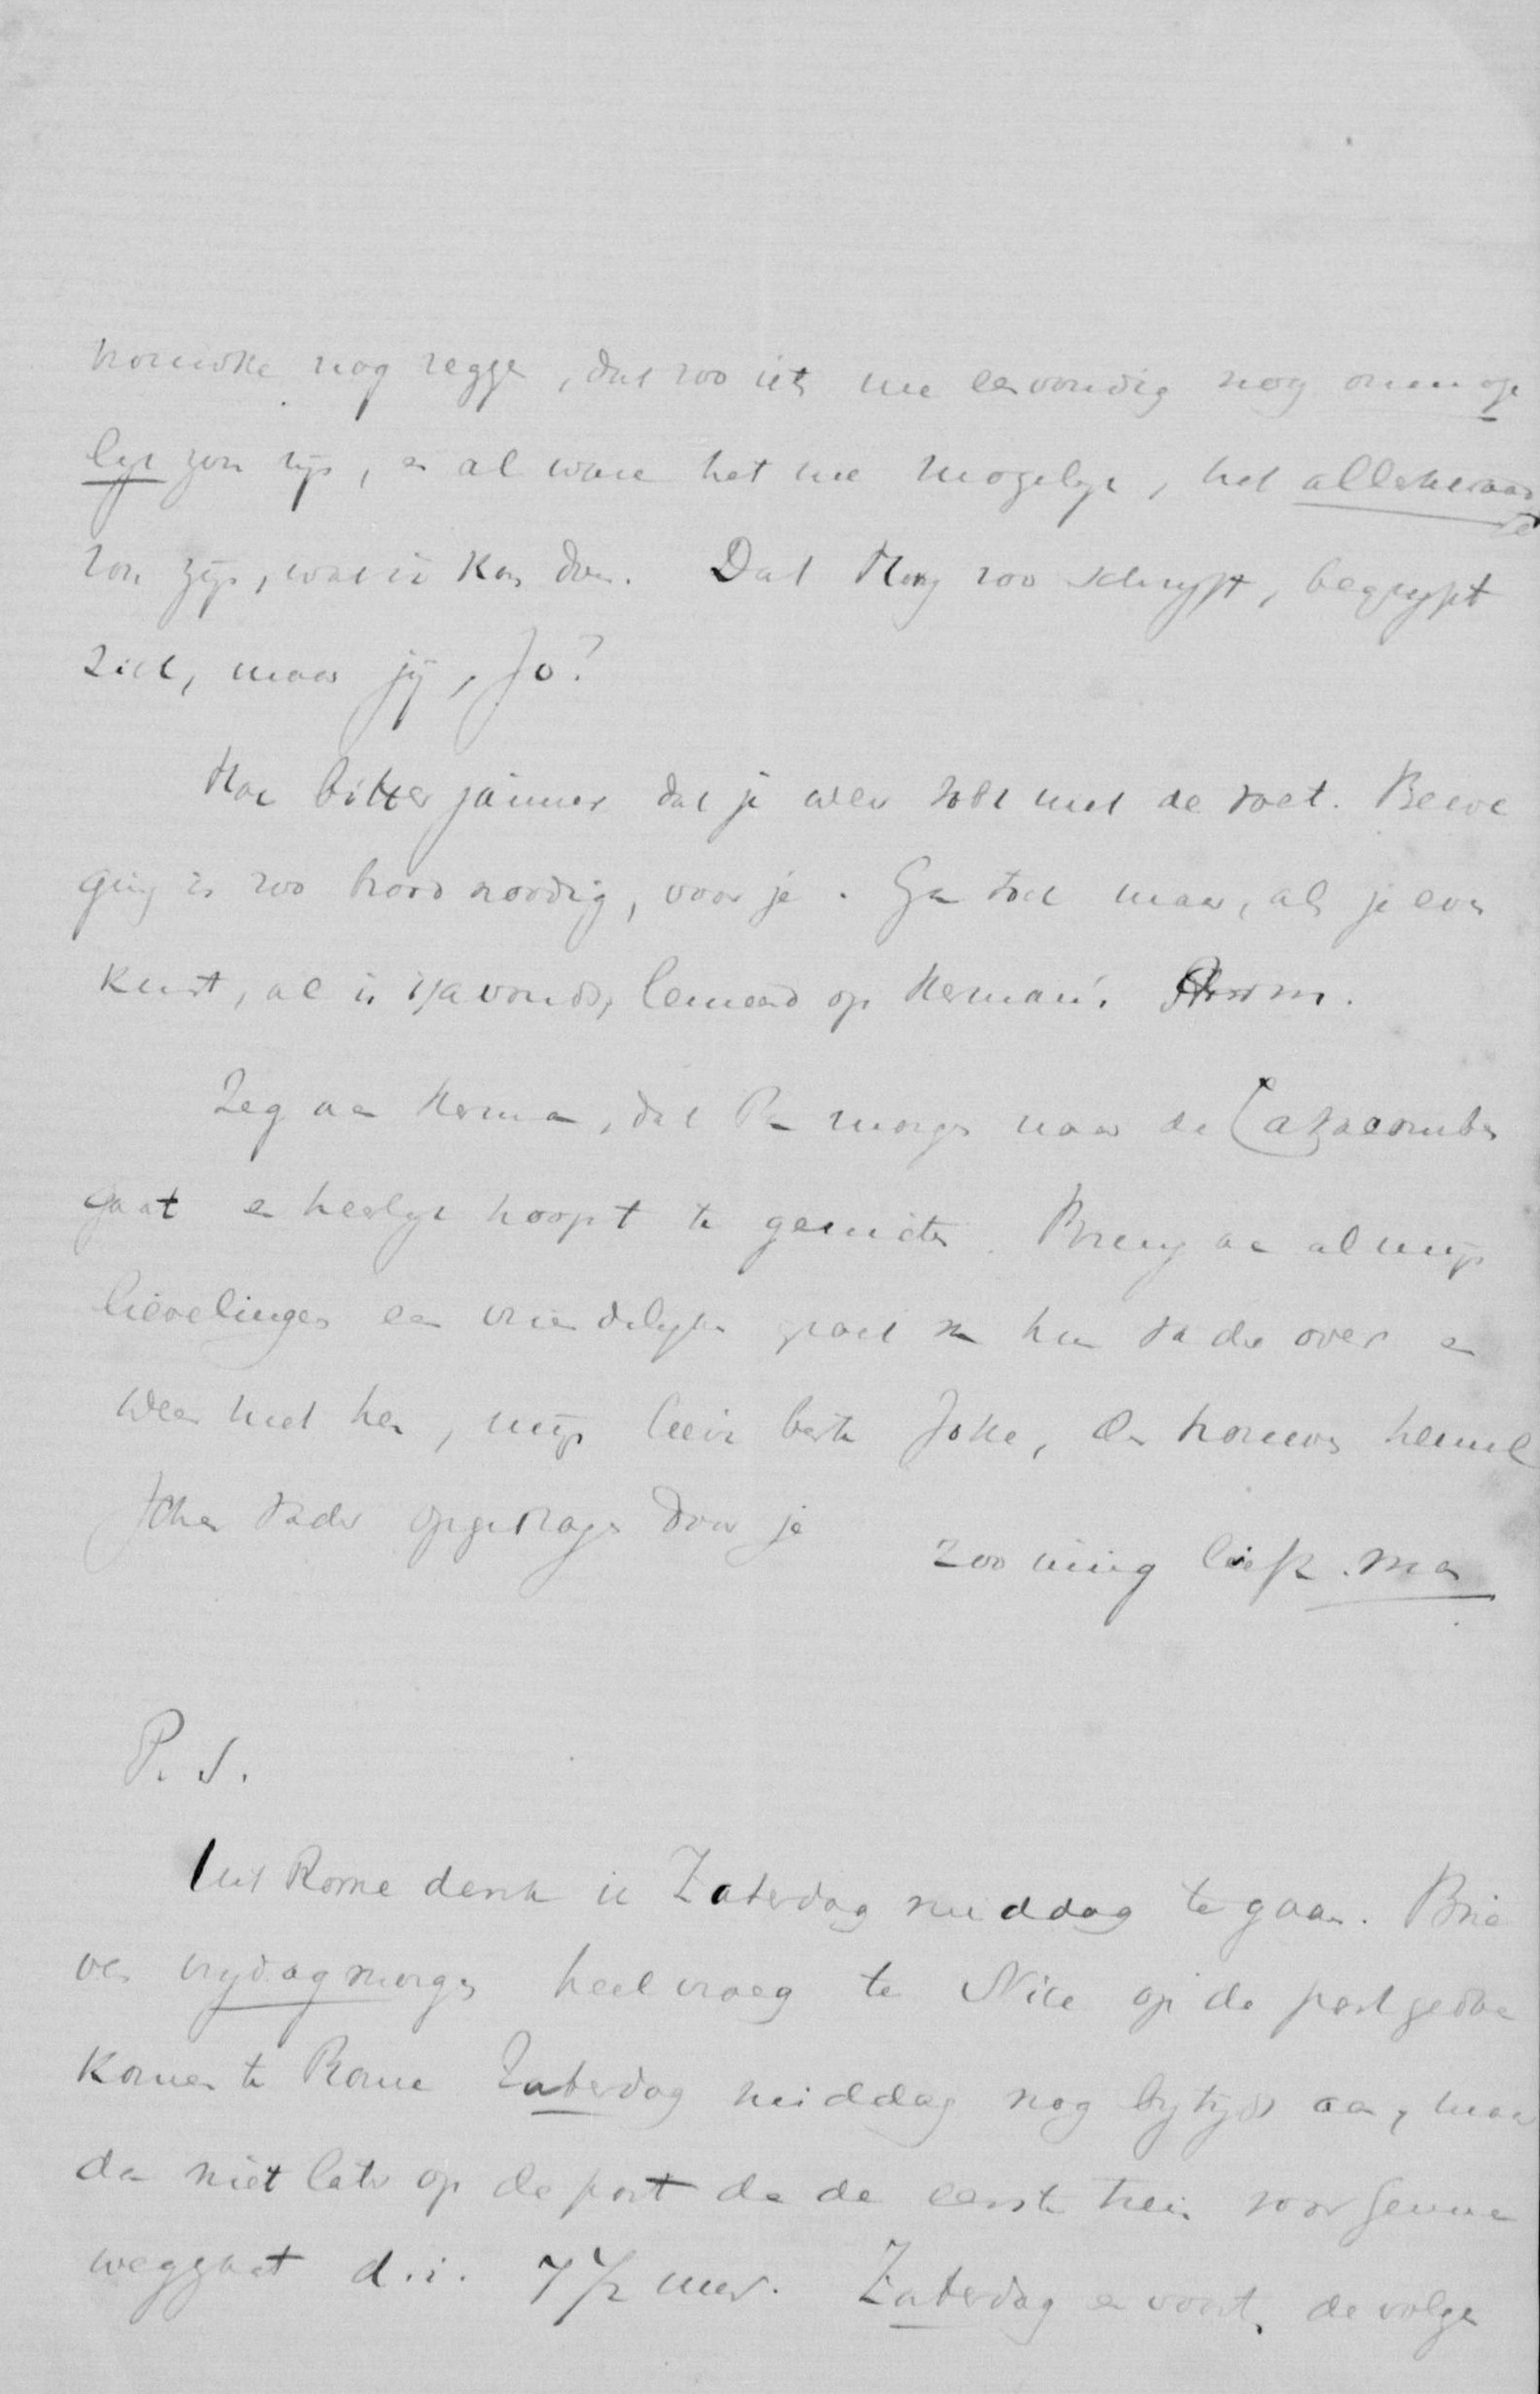 nog zegge, dat zoo iets me eenvoudig nog onmoge
lyk zou zyn, en al ware het me mogelyk, het allerkwaad
ste
zou zyn, wat ik kon doen. Dat Hen͏y zoo schryft, begrypt
zich, maar jij, Jo?
Hoe bitter jammer dat je weer tobt met de voet. Bewe
ging is zoo hoog noodig, voor je. Ga toch maar, als je even
kunt, al is 's avonds, leunend op Herman's Arm.
Zeg aan Herman, dat Pa morgen naar de Catacomben
gaat en heerlyk hoopt te genieten. Breng aan al myn
lievelingen een vriendelyken groet van hun Vader over en
Wees met hen, myn lieve beste Joke, den trouwen hemel
schen Vader opgedragen door je
zoo innig liefh. man
P. S.
Uit Rome denk ik Zaterdag middag te gaan. Brie
ven vrydagmorgen heel vroeg te Nice op de post gedaan
komen te Rome Zaterdag middag nog bytyds aan, maar
dan niet later op de post dan de eerste trein voor Genua
weggaat d.i. 7 1/2 uur. Zaterdag en voorts de volgen